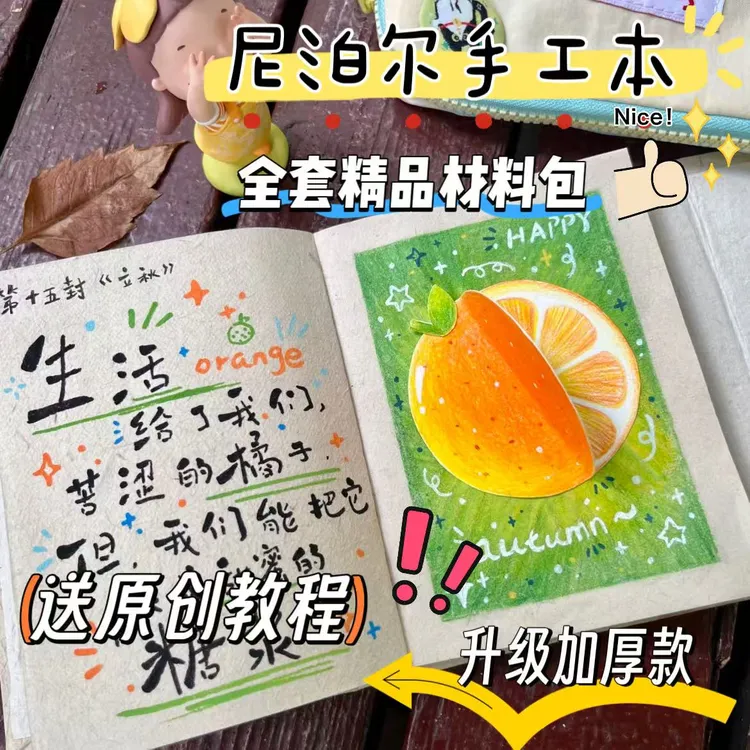 尼泊尔手工本
Nice!
全套精品材料包
第十五封《立秋》
生活
orange
给了我们,
苦涩的橘子.
但,我们能把它
蜜的
糖水
HAPPY
autumn~
(送原创教程)
!!
升级加厚款